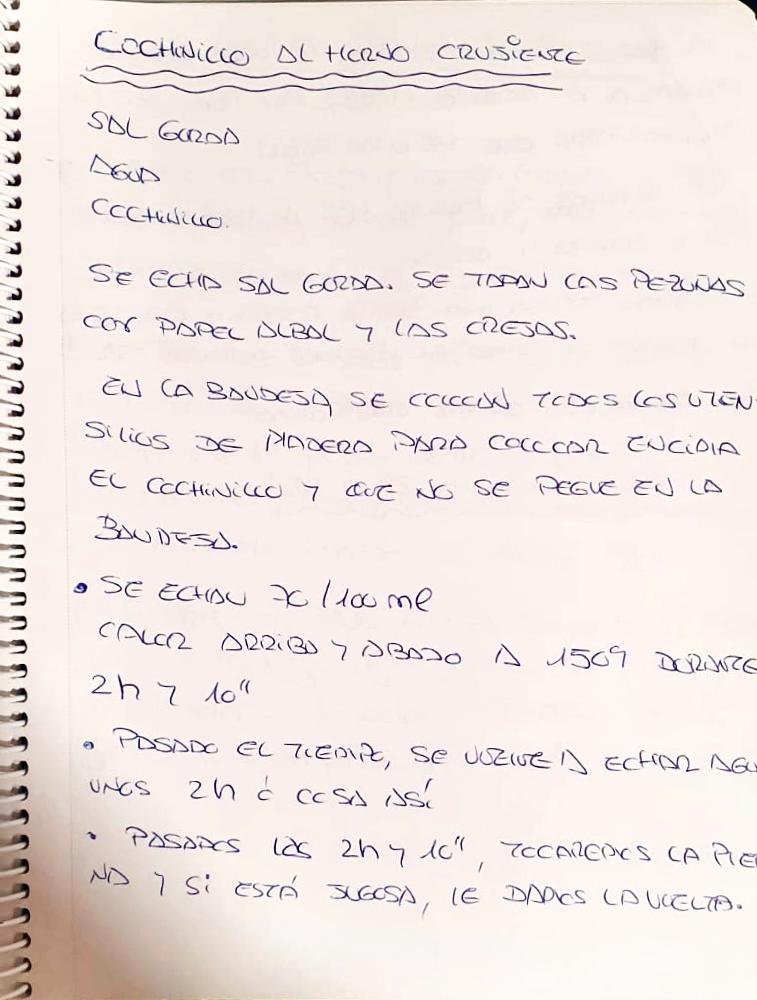 COCHINILLO AL HORNO CRUJIENTE
SAL GORDA
AGUA
COCHINILLO.
SE ECHA SAL GORDA. SE TAPAN LAS PEZUÑAS
CON PAPEL ALBAL Y LAS OREJAS.
EN LA BANDEJA, SE COLOCAN TODOS LOS UTEN-
SILIOS DE MADERA PARA COLOCAR ENCIMA
EL COCHINILLO Y QUE NO SE PEGUE EN LA
BANDEJA.
• SE ECHAN 70/100 ml
CALOR ARRIBA Y ABAJO A 150º DURANTE
2h Y 10"
• PASADO EL TIEMPO, SE VUELVE A ECHAR AGU
UNOS 2h ó COSA ASÍ
• PASADOS LAS 2h Y 10", TOCAREMOS LA PIER
NA Y SI ESTÁ JUGOSA, LE DAMOS LA VUELTA.